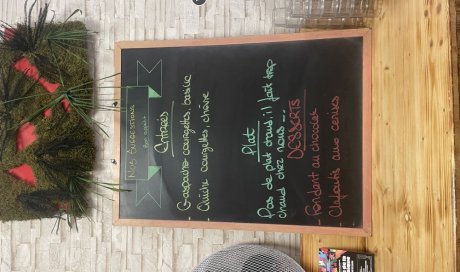 Nos Suggestions
Bon appétit
Entrées
- Gaspacho courgettes, basilic
- Quiche courgettes, chèvre
Plat
Pas de plat chaud, il fait trop
chaud chez nous ...
DESSERTS
- Fondant au chocolat
- Clafoutis aux cerises